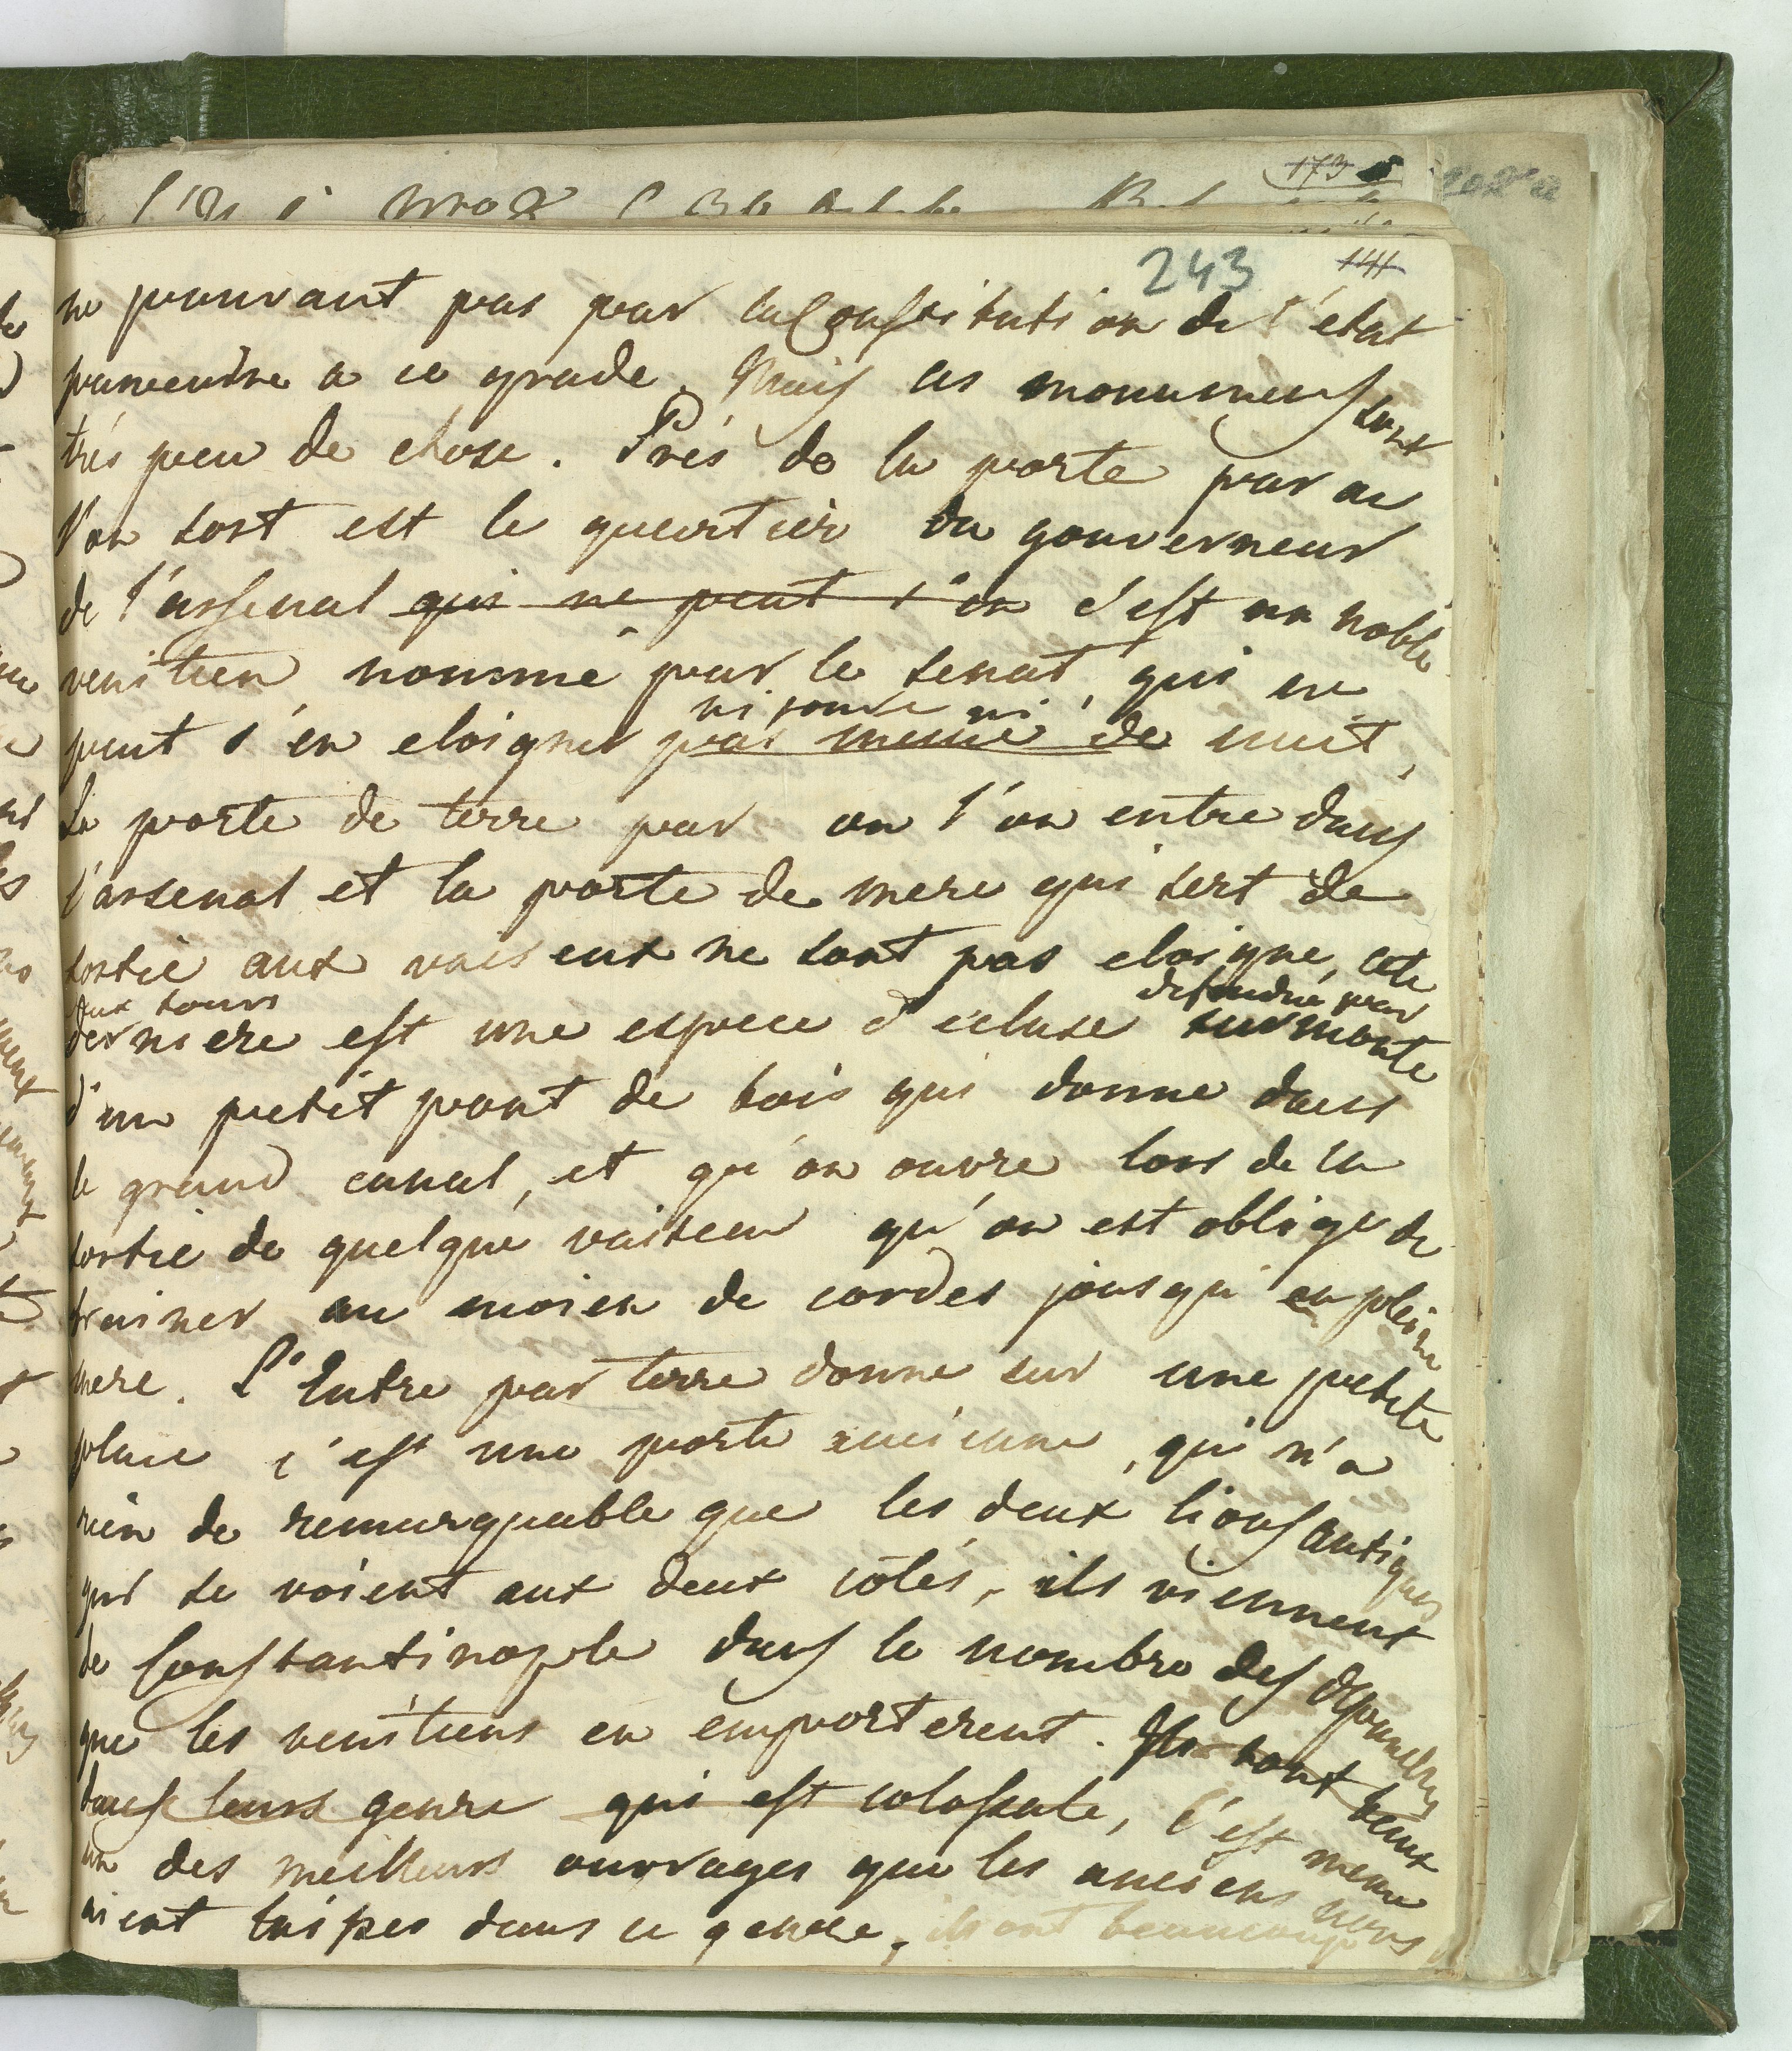 173
243
141
ne pouvant pas par la Constitution de l'état
parvenire a ce grade. Mais ces monumens sont
trés peu de chose. Prés de la porte par ou
l'on sort est le queurtier du gouverneur
de l'assenal qui ne peut s'en c'est un noble
venitien nommé par le senat, qui ne
ni jour ni
peut s'en eloigner pas meme de nuit,
La porte de terre par ou l'on entre dans
l'arsenal et la porte de mere qui sert de
sortie aux vaiseux ne sont pas eloigne, cete
deux tours defendue par
derniere est une espece d'ecluse surmonte
d'un petit pont de bois qui donne dans
le grand canal, et qu'on ouvre lors de la
sortie de quelque vaisseau qu'on est oblige de
trainer au moien de cordes jousqu'en pleine
mere. L'Entre par terre donne sur une petite
place c'est une porte anciene, qui n'a
rien de remarquable que les deux lions antiques
qui se voient aux deux côtés, ils viennent
de Constantinople dans le nombre des depouilles
que les venitiens en emporterent. Ils sont beaux
dans leurs genre qui est colossale, c'est meme
un des meilleurs ouvrages que les anciens nous
aient laisses dans ce genre, ils ont beaucoup